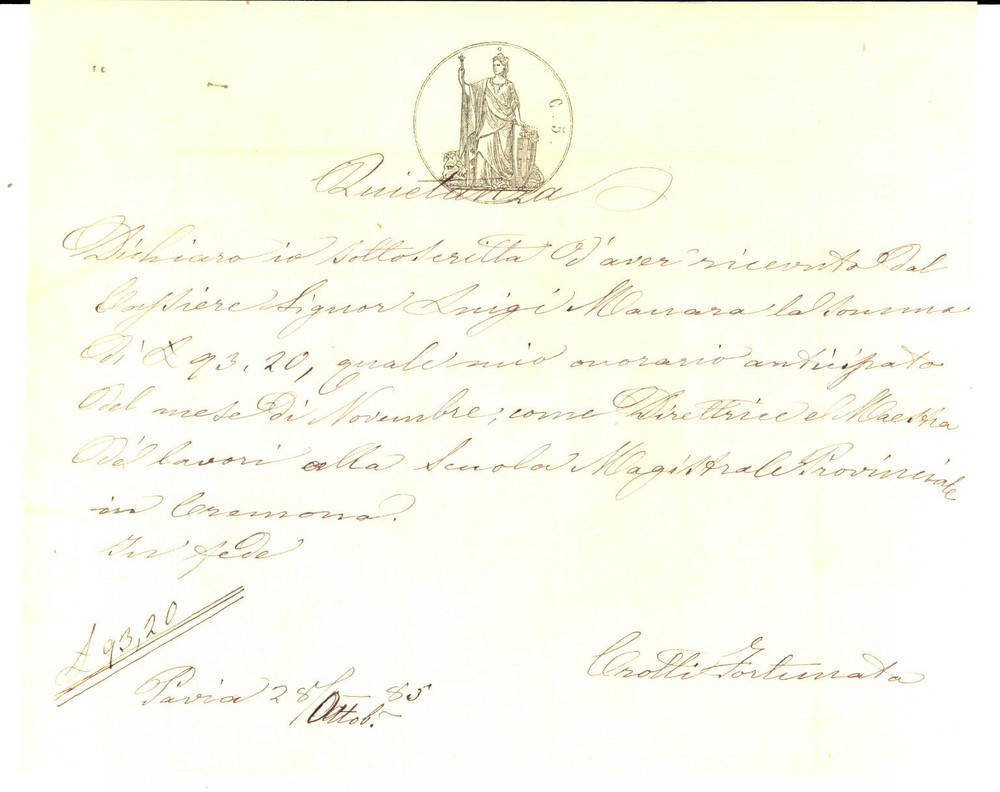 C. 5.
Quietanza
Dichiaro io sottoscritta d'aver ricevuto dal
Cassiere Signor Luigi Manara la somma
di £ 93.20, quale mio onorario anticipato
del mese di Novembre, come Direttrice e Maestra
de' lavori alla Scuola Magistrale Provinciale
in Cremona.
In fede
£ 93,20
Crotti Fortunata
Pavia 28/Ottob.e 85